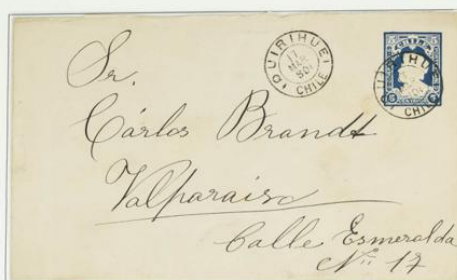 QUIRIHUE
17
MAR
90
CHILE
QUIRIHUE
CHILE
Sr.
Cárlos Brandt
Valparaiso
Calle Esmeralda
No. 17